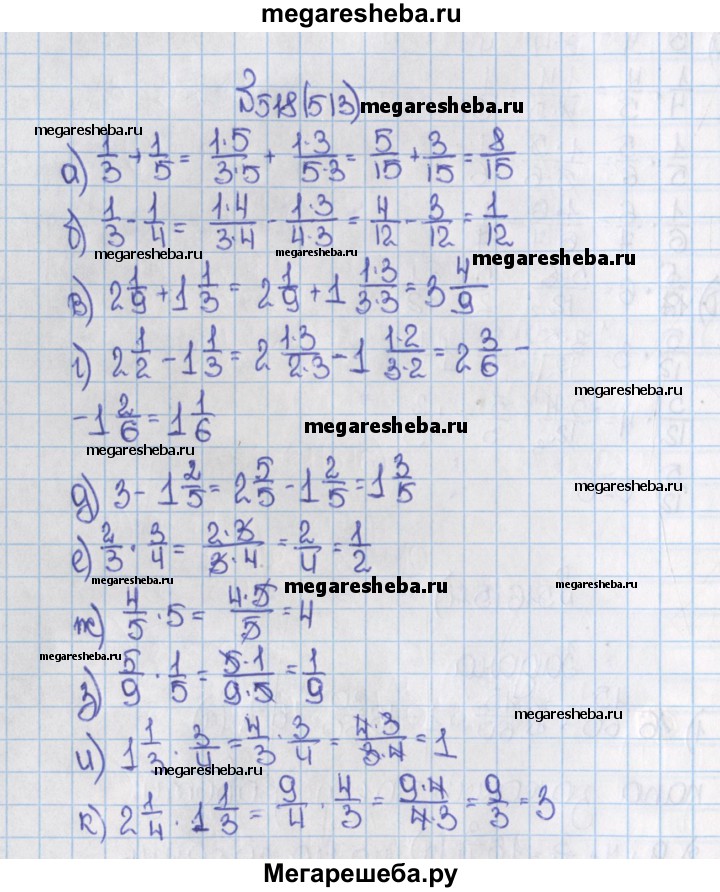 megaresheba.ru
№518(513) megaresheba.ru
megaresheba.ru
а) 1/3 + 1/5 = 1·5/3·5 + 1·3/5·3 = 5/15 + 3/15 = 8/15
б) 1/3 - 1/4 = 1·4/3·4 - 1·3/4·3 = 4/12 - 3/12 = 1/12
megaresheba.ru megaresheba.ru
в) 2 1/9 + 1 1/3 = 2 1/9 + 1 1·3/3·3 = 3 4/9
г) 2 1/2 - 1 1/3 = 2 1·3/2·3 - 1 1·2/3·2 = 2 3/6 -
megaresheba.ru
- 1 2/6 = 1 1/6 megaresheba.ru
megaresheba.ru
д) 3 - 1 2/5 = 2 5/5 - 1 2/5 = 1 3/5
megaresheba.ru
е) 2/3 · 3/4 = 2·3/3·4 = 2/4 = 1/2
megaresheba.ru megaresheba.ru
ж) 4/5 · 5 = 4·5/5 = 4
megaresheba.ru
з) 5/9 · 1/5 = 5·1/9·5 = 1/9
megaresheba.ru
и) 1 1/3 · 3/4 = 4/3 · 3/4 = 4·3/3·4 = 1
megaresheba.ru
к) 2 1/4 · 1 1/3 = 9/4 · 4/3 = 9·4/4·3 = 9/3 = 3
Мегарешеба.ру